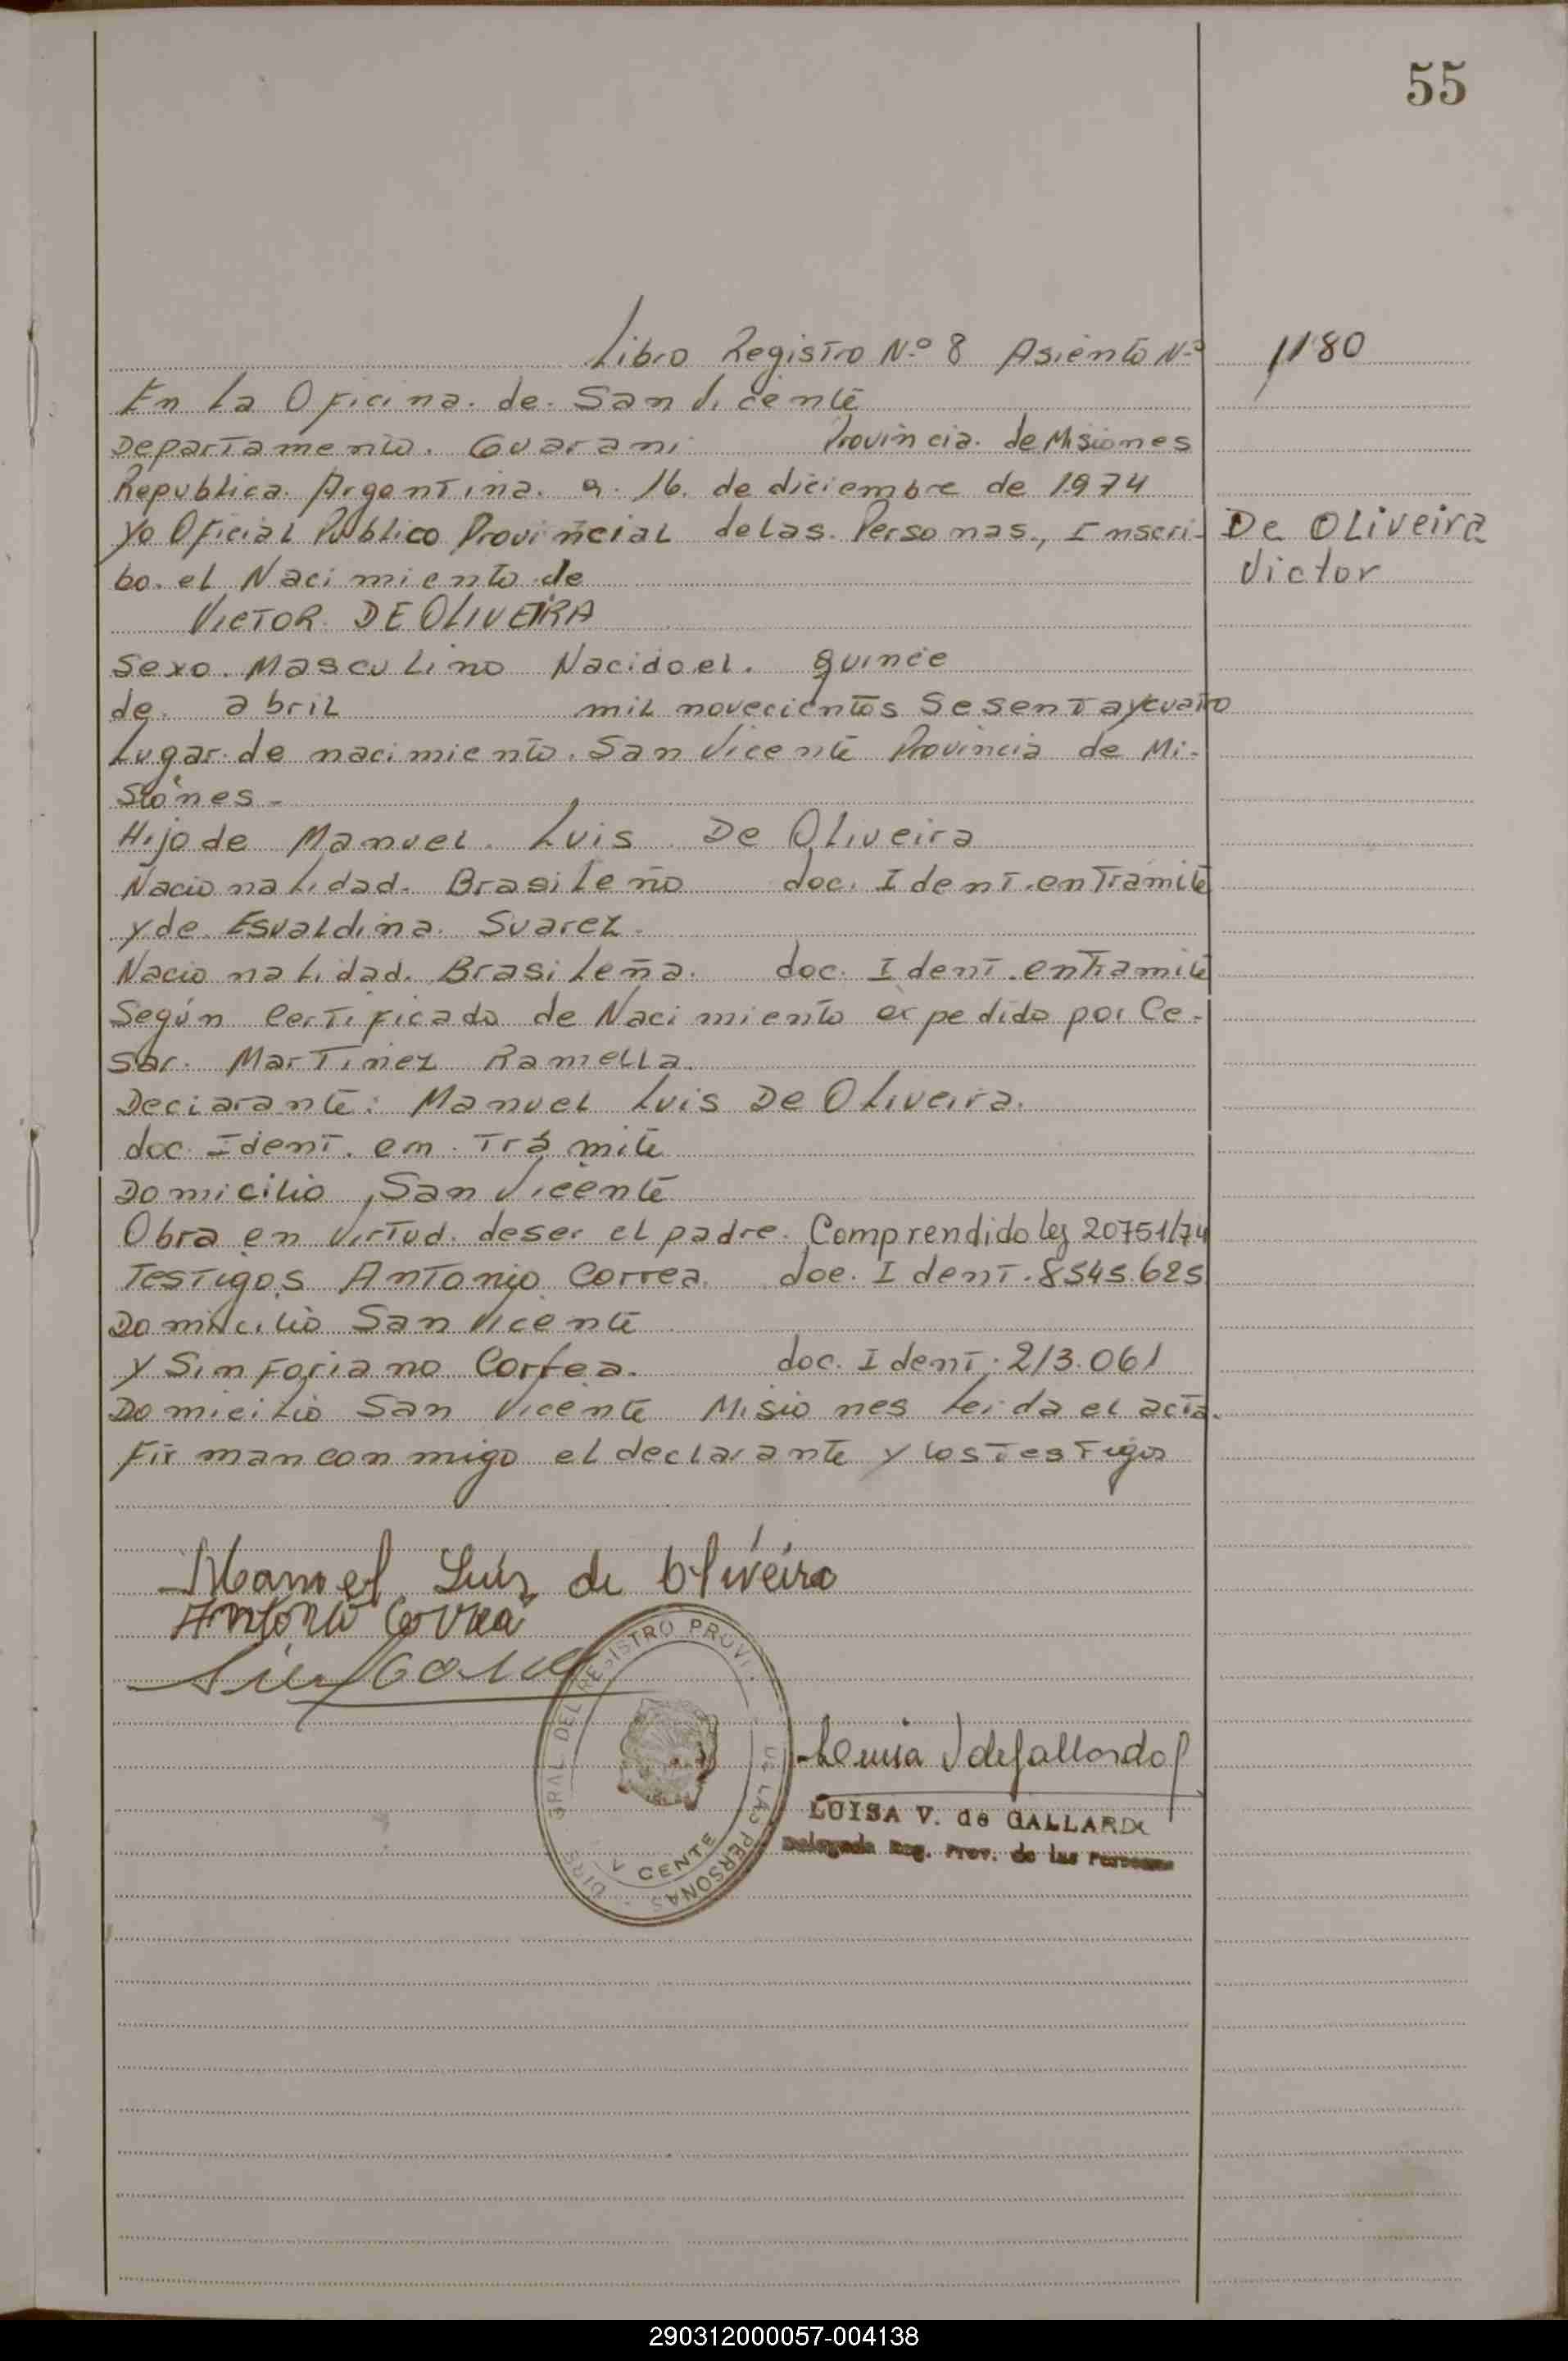 55
Libro Registro N.º 8 Asiento N.º 1180
En la Oficina. de. San Vicente
Departamento. Guarani Provincia. de Misiones
Republica. Argentina. a. 16. de diciembre de 1974
yo Oficial Publico Provincial delas. Personas., Inscri- De Oliveira
bo. el Nacimiento de Victor
VICTOR. DE OLIVEIRA
Sexo. Masculino Nacido el. quince
de. abril mil novecientos Sesentaycuatro
Lugar. de nacimiento. San Vicente Provincia de Mi-
siones.
Hijo de Manuel. Luis. De Oliveira
Nacionalidad. Brasileño doc. Ident. en Tramite
y de Esualdina. Suarez.
Nacionalidad. Brasileña. doc. Ident. en Tramite
Según Certificado de Nacimiento expedido por Ce-
sar. Martinez Ramella.
Declarante: Manuel Luis De Oliveira.
doc. Ident. en. Trámite
Domicilio San Vicente
Obra en Virtud. deser el padre. Comprendido ley 20751/74
Testigos Antonio Correa. doc. Ident. 8545.625
Domicilio San Vicente
y Sinforiano Correa. doc. Ident. 213.061
Domicilio San Vicente Misiones leida el acta.
Firman conmigo el declarante y los Testigos
Manoel Luis de Oliveira
Antonio Correa
GRAL. DEL REGISTRO PROVI DE LAS PERSONAS
CENTE
LUISA V. de GALLARDO
Delegada Reg. Prov. de las Personas
290312000057-004138